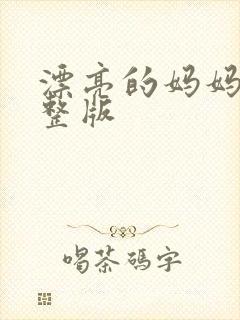 漂亮的妈妈
整版
喝茶碼字